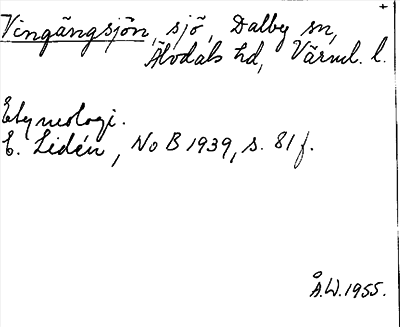 +
Vingängsjön, sjö, Dalby sn,
Älvdals hd, Värml. l.
Etymologi.
E. Lidén, NoB 1939, s. 81 f.
Å.W. 1955.